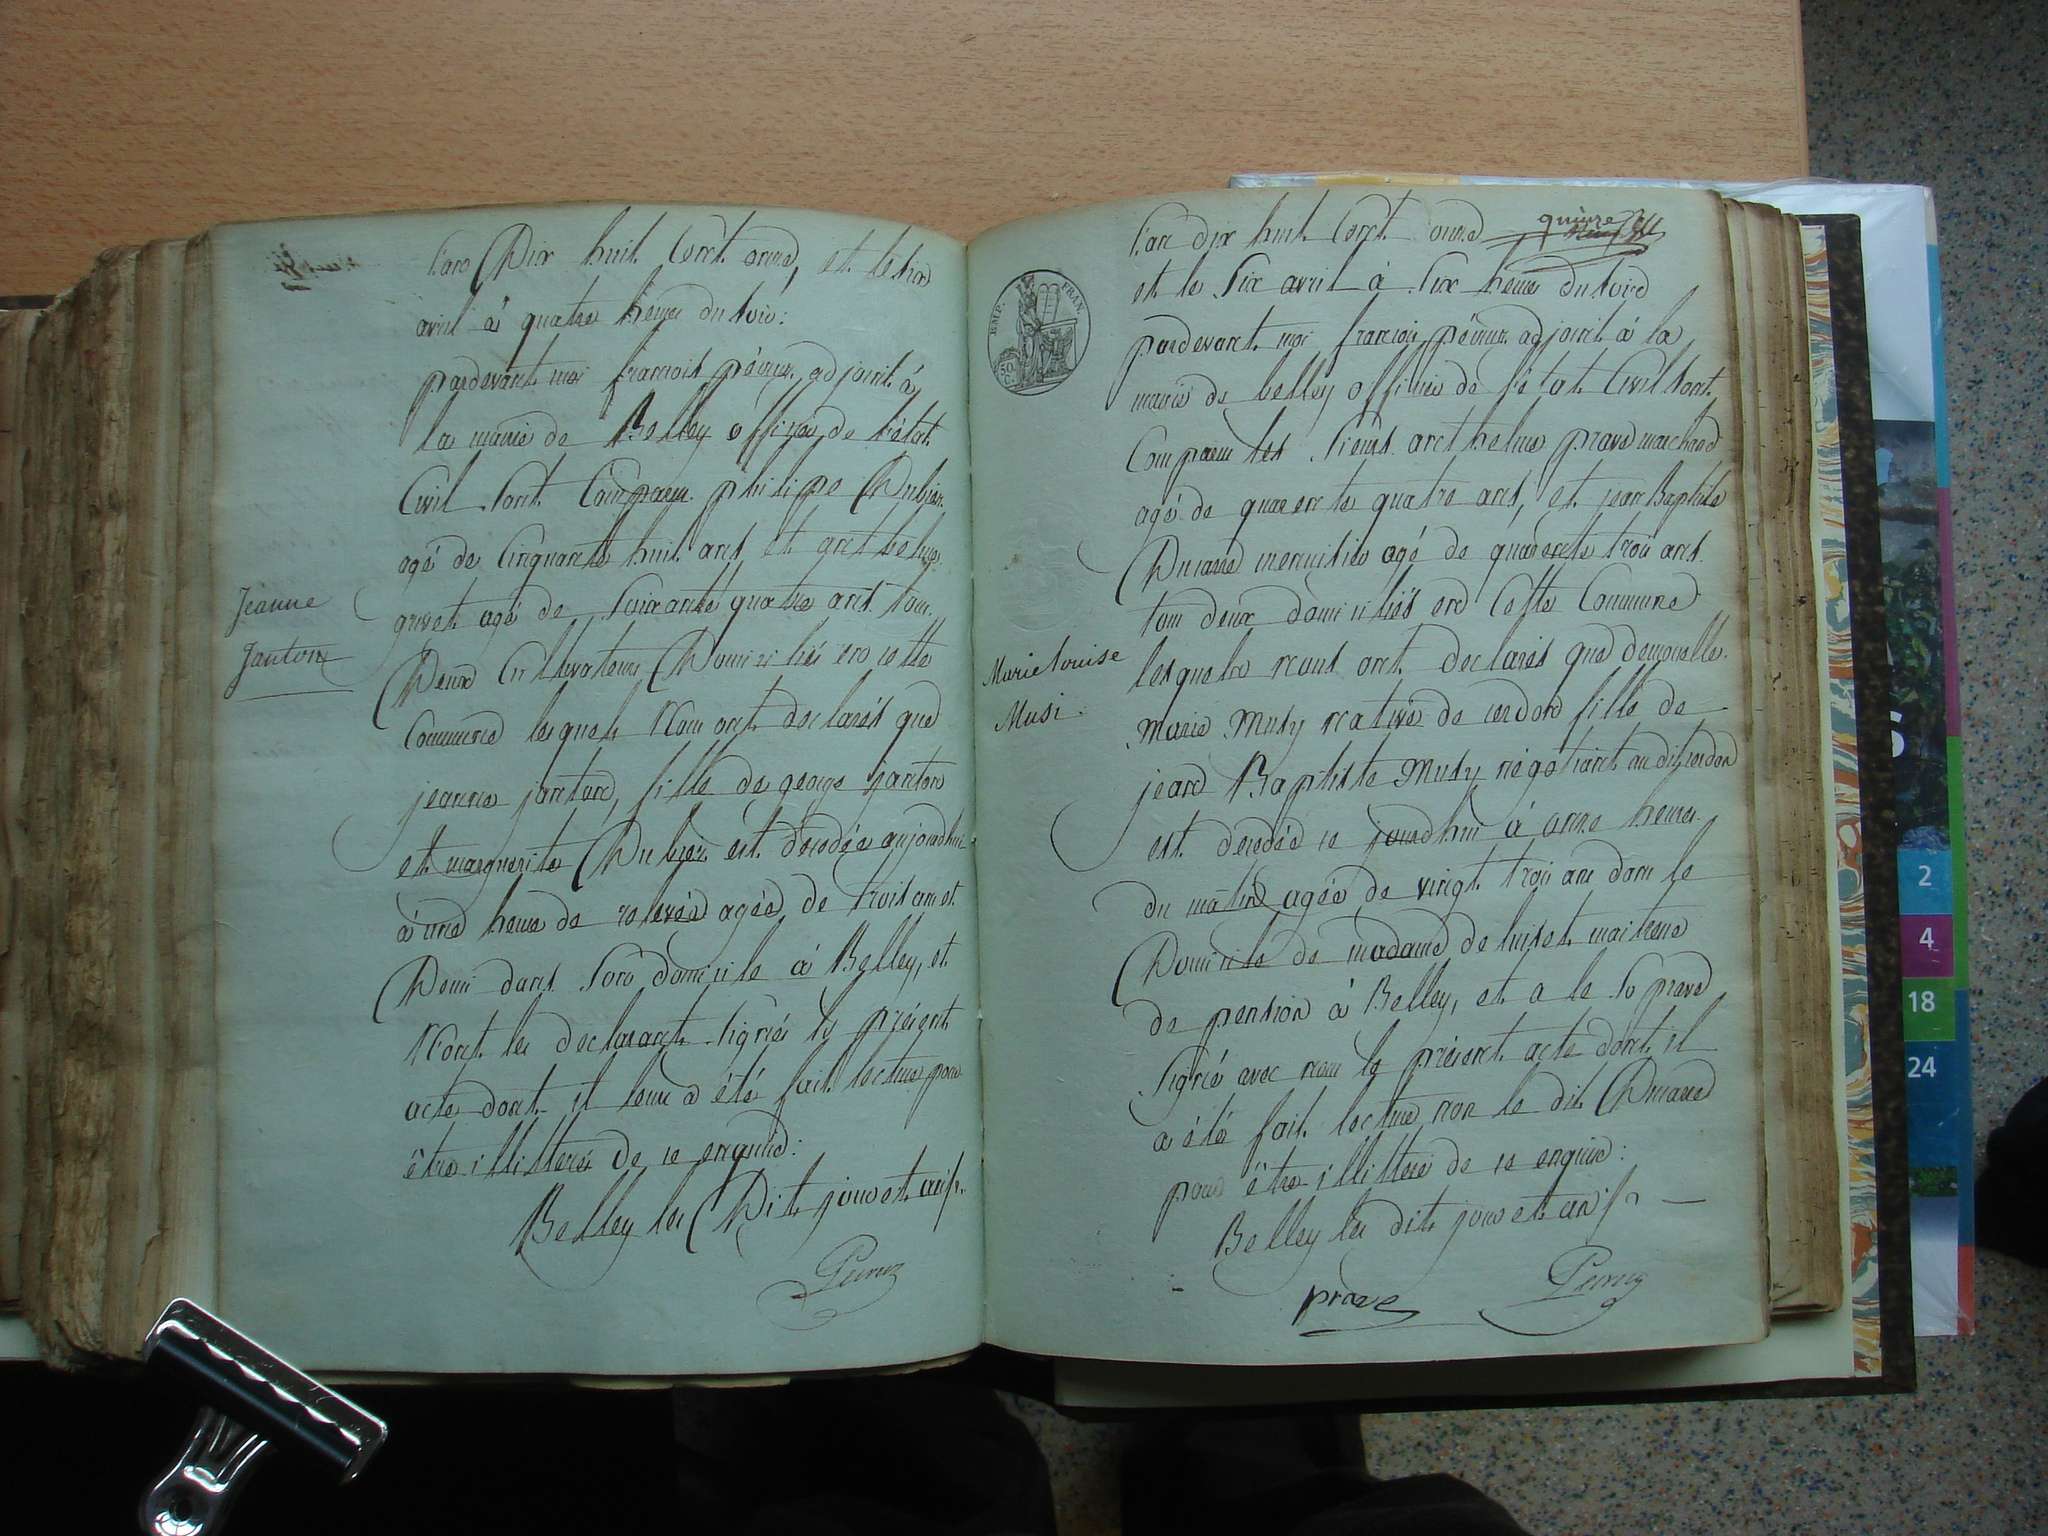 l'an Dix huit Cent onze, et le trois
avril à quatre heures du soir:
pardevant moi françois péruz adjoint à
la mairie de Belley officier de l'état
Civil sont Comparu philipe Dubier
agé de Cinquante huit ans et anthelme
grivet agé de Soixante quatre ans tous
Deux Cultivateurs Domiciliés en cette
Commune lesquels Nous ont declarés que
jeanne janton, fille de george janton
et marguerite Dubier est décédée aujourdhui
à une heure de relevée agée de trois ans et
Demi dans son domicile à Belley, et
N'ont les declarants signés le présent
acte dont il leur a été fait lecture pour
être illitterés de ce enquis:
Belley les Dit jour et an
Peruz
Jeanne
Janton
quinze
l'an dix huit Cent onze
et le Six avril à Six heures du soir
pardevant moi françois péruz adjoint à la
mairie de belley officier de l'état Civil sont
Comparu les Sieurs anthelme prave marchand
agé de quarente quatre ans, et jean Baptiste
menuisier agé de quarente trois ans
tous deux domiciliés en Cette Commune
lesquels nous ont declarés que demoiselle
Marie Musy native de cerdon fille de
jean Baptiste Musy négotiant au dit cerdon
est decedée ce jourdhui à onze heures
du matin agée de vingt trois ans dans le
Domicile de madame de luiset maitresse
de pension à Belley, et a le Sr prave
Signé avec nous le présent acte dont il
a été fait lecture non le dit
pour être illitteré de ce enquis:
Belley les dit jour et an
prave
Peruz
EMP. FRAN.
50 C.
Marie Louise
Musi
S
2
4
18
24